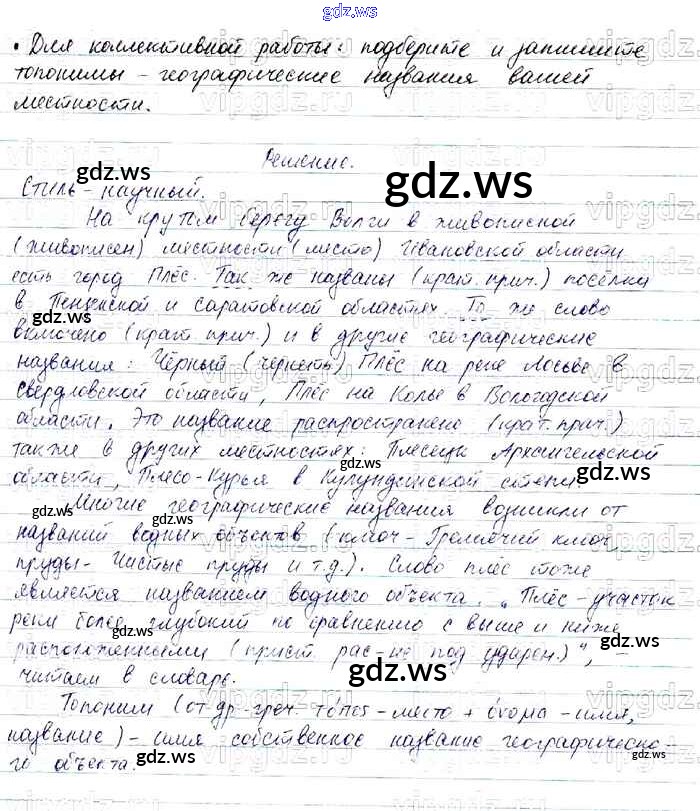 gdz.ws
• Для коллективной работы: подберите и запишите
топонимы – географические названия вашей
местности.
Решение.
Стиль – научный.
На крутм берегу Волги в живописной
(живописен) местности (место) Ивановской области
есть город Плёс. Так же названы (крат. прич.) посёлки
в Пензенской и Саратовской областях. То же слово
включено (крат. прич.) и в другие географические
названия: Чёрный (чернеть) Плёс на реке Лосьве в
Свердловской области, Плёс на Колье в Вологодской
области. Это название распространено (крат. прич.)
также в других местностях: Плесецк Архангельской
области, Плёсо-Курья в Кулундинской степи.
Многие географические названия возникли от
названий водных объектов (ключ – Гремячий ключ,
пруды – Чистые пруды и т.д.). Слово плёс тоже
является названием водного объекта. „Плёс – участок
реки более глубокий по сравнению с выше и ниже
расположенными (прист. рас- не под ударен.)", –
читаем в словаре.
Топоним (от др.-греч. tópos – место + ónoma – имя,
название) – имя собственное название географическо-
го объекта.